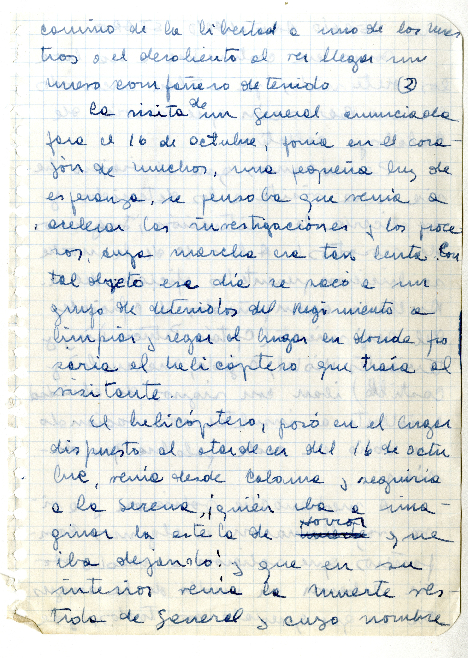 camino de la libertad a uno de los nues
tros o el desaliento al ver llegar un
nuevo compañero detenido (3)
La visita de un General anunciada
para el 16 de Octubre, ponía en el cora-
zón de muchos, una pequeña luz de
esperanza, se pensaba que venía a
acelerar las investigaciones y los proce
sos, cuya marcha era tan lenta. Con
tal objeto ese día se sacó a un
grupo de detenidos del Regimiento a
limpiar y regar el lugar en donde po
saría el helicóptero que traía al
visitante.
El helicóptero, posó en el lugar
dispuesto al atardecer del 16 de octu
bre, venía desde Calama y seguiría
a La Serena, ¡quién iba a ima
ginar la estela de horror que
iba dejando! y que en su
interior venía la muerte ves
tida de General y cuyo nombre